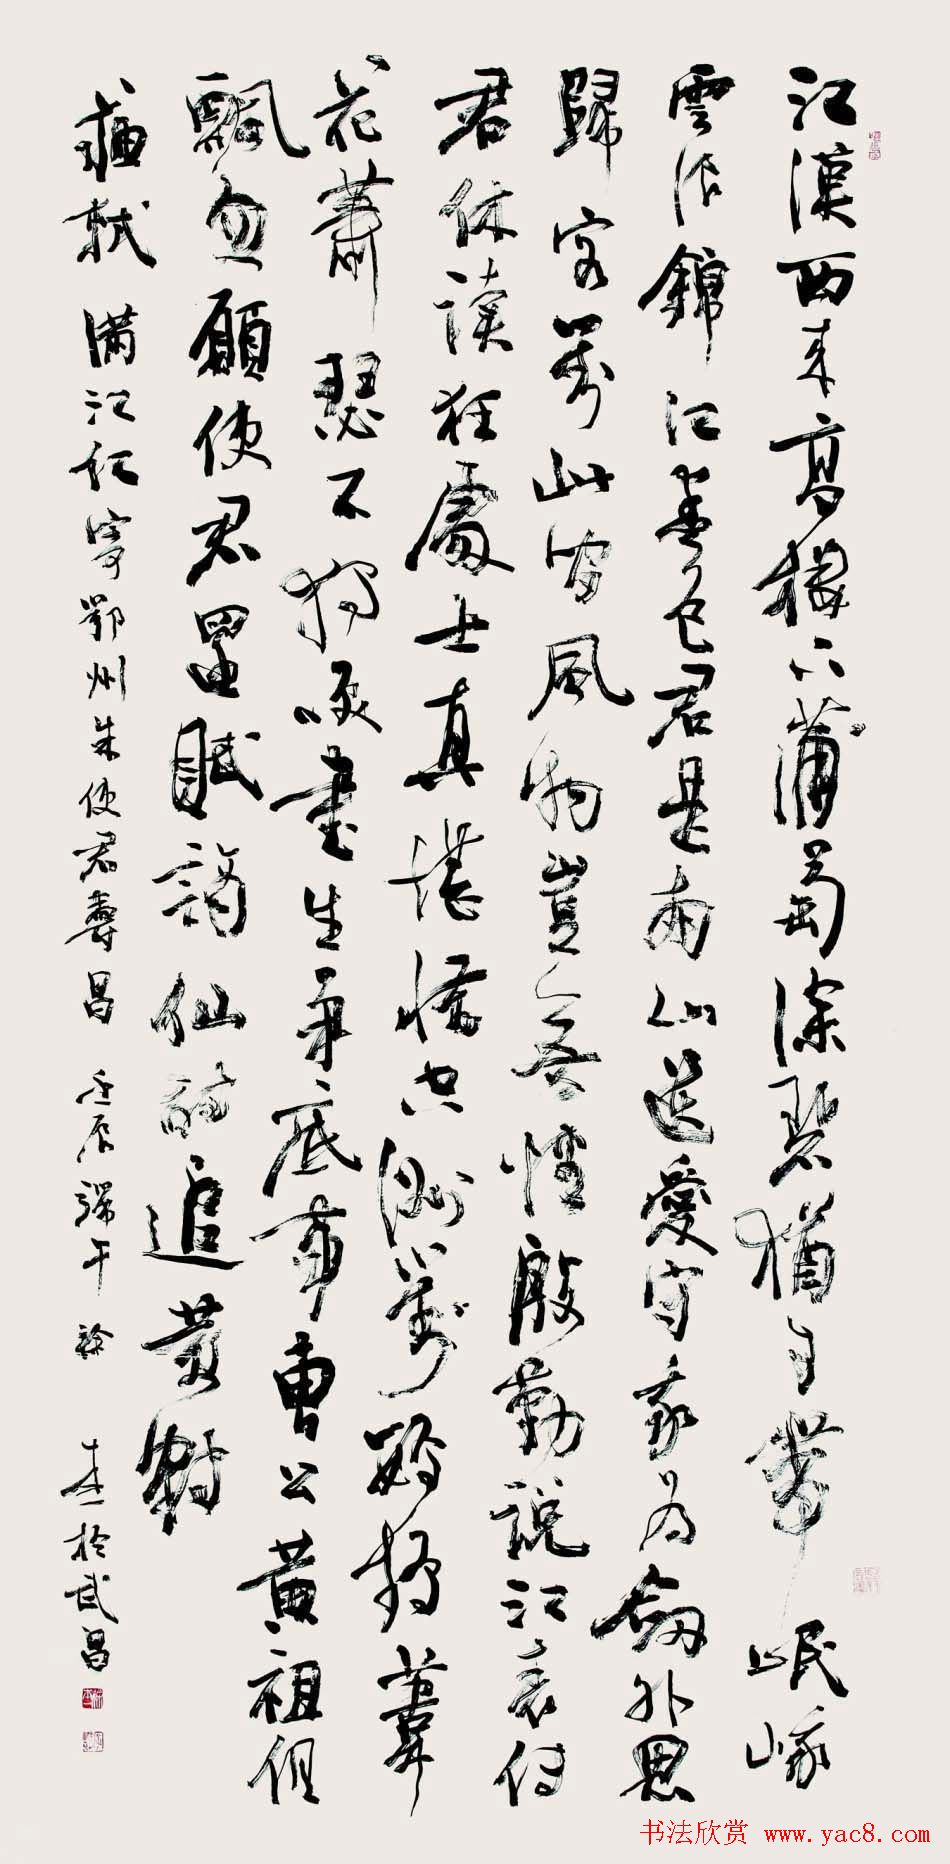 江漢西來高樓下蒲萄深碧猶自帶岷峨
雲浪錦江春色君是南山遺愛守我為劍外思
歸客對此間風物豈無情殷勤說江表傳
君休讀狂處士真堪惜空洲對鸚鵡葦
花蕭瑟不獨咲書生爭底事曹公黃祖俱
飄忽願使君還賦謫仙詩追黃鶴
蘇軾 滿江紅寄鄂州朱使君壽昌 壬辰端午 於武昌
书法欣赏 www.yac8.com